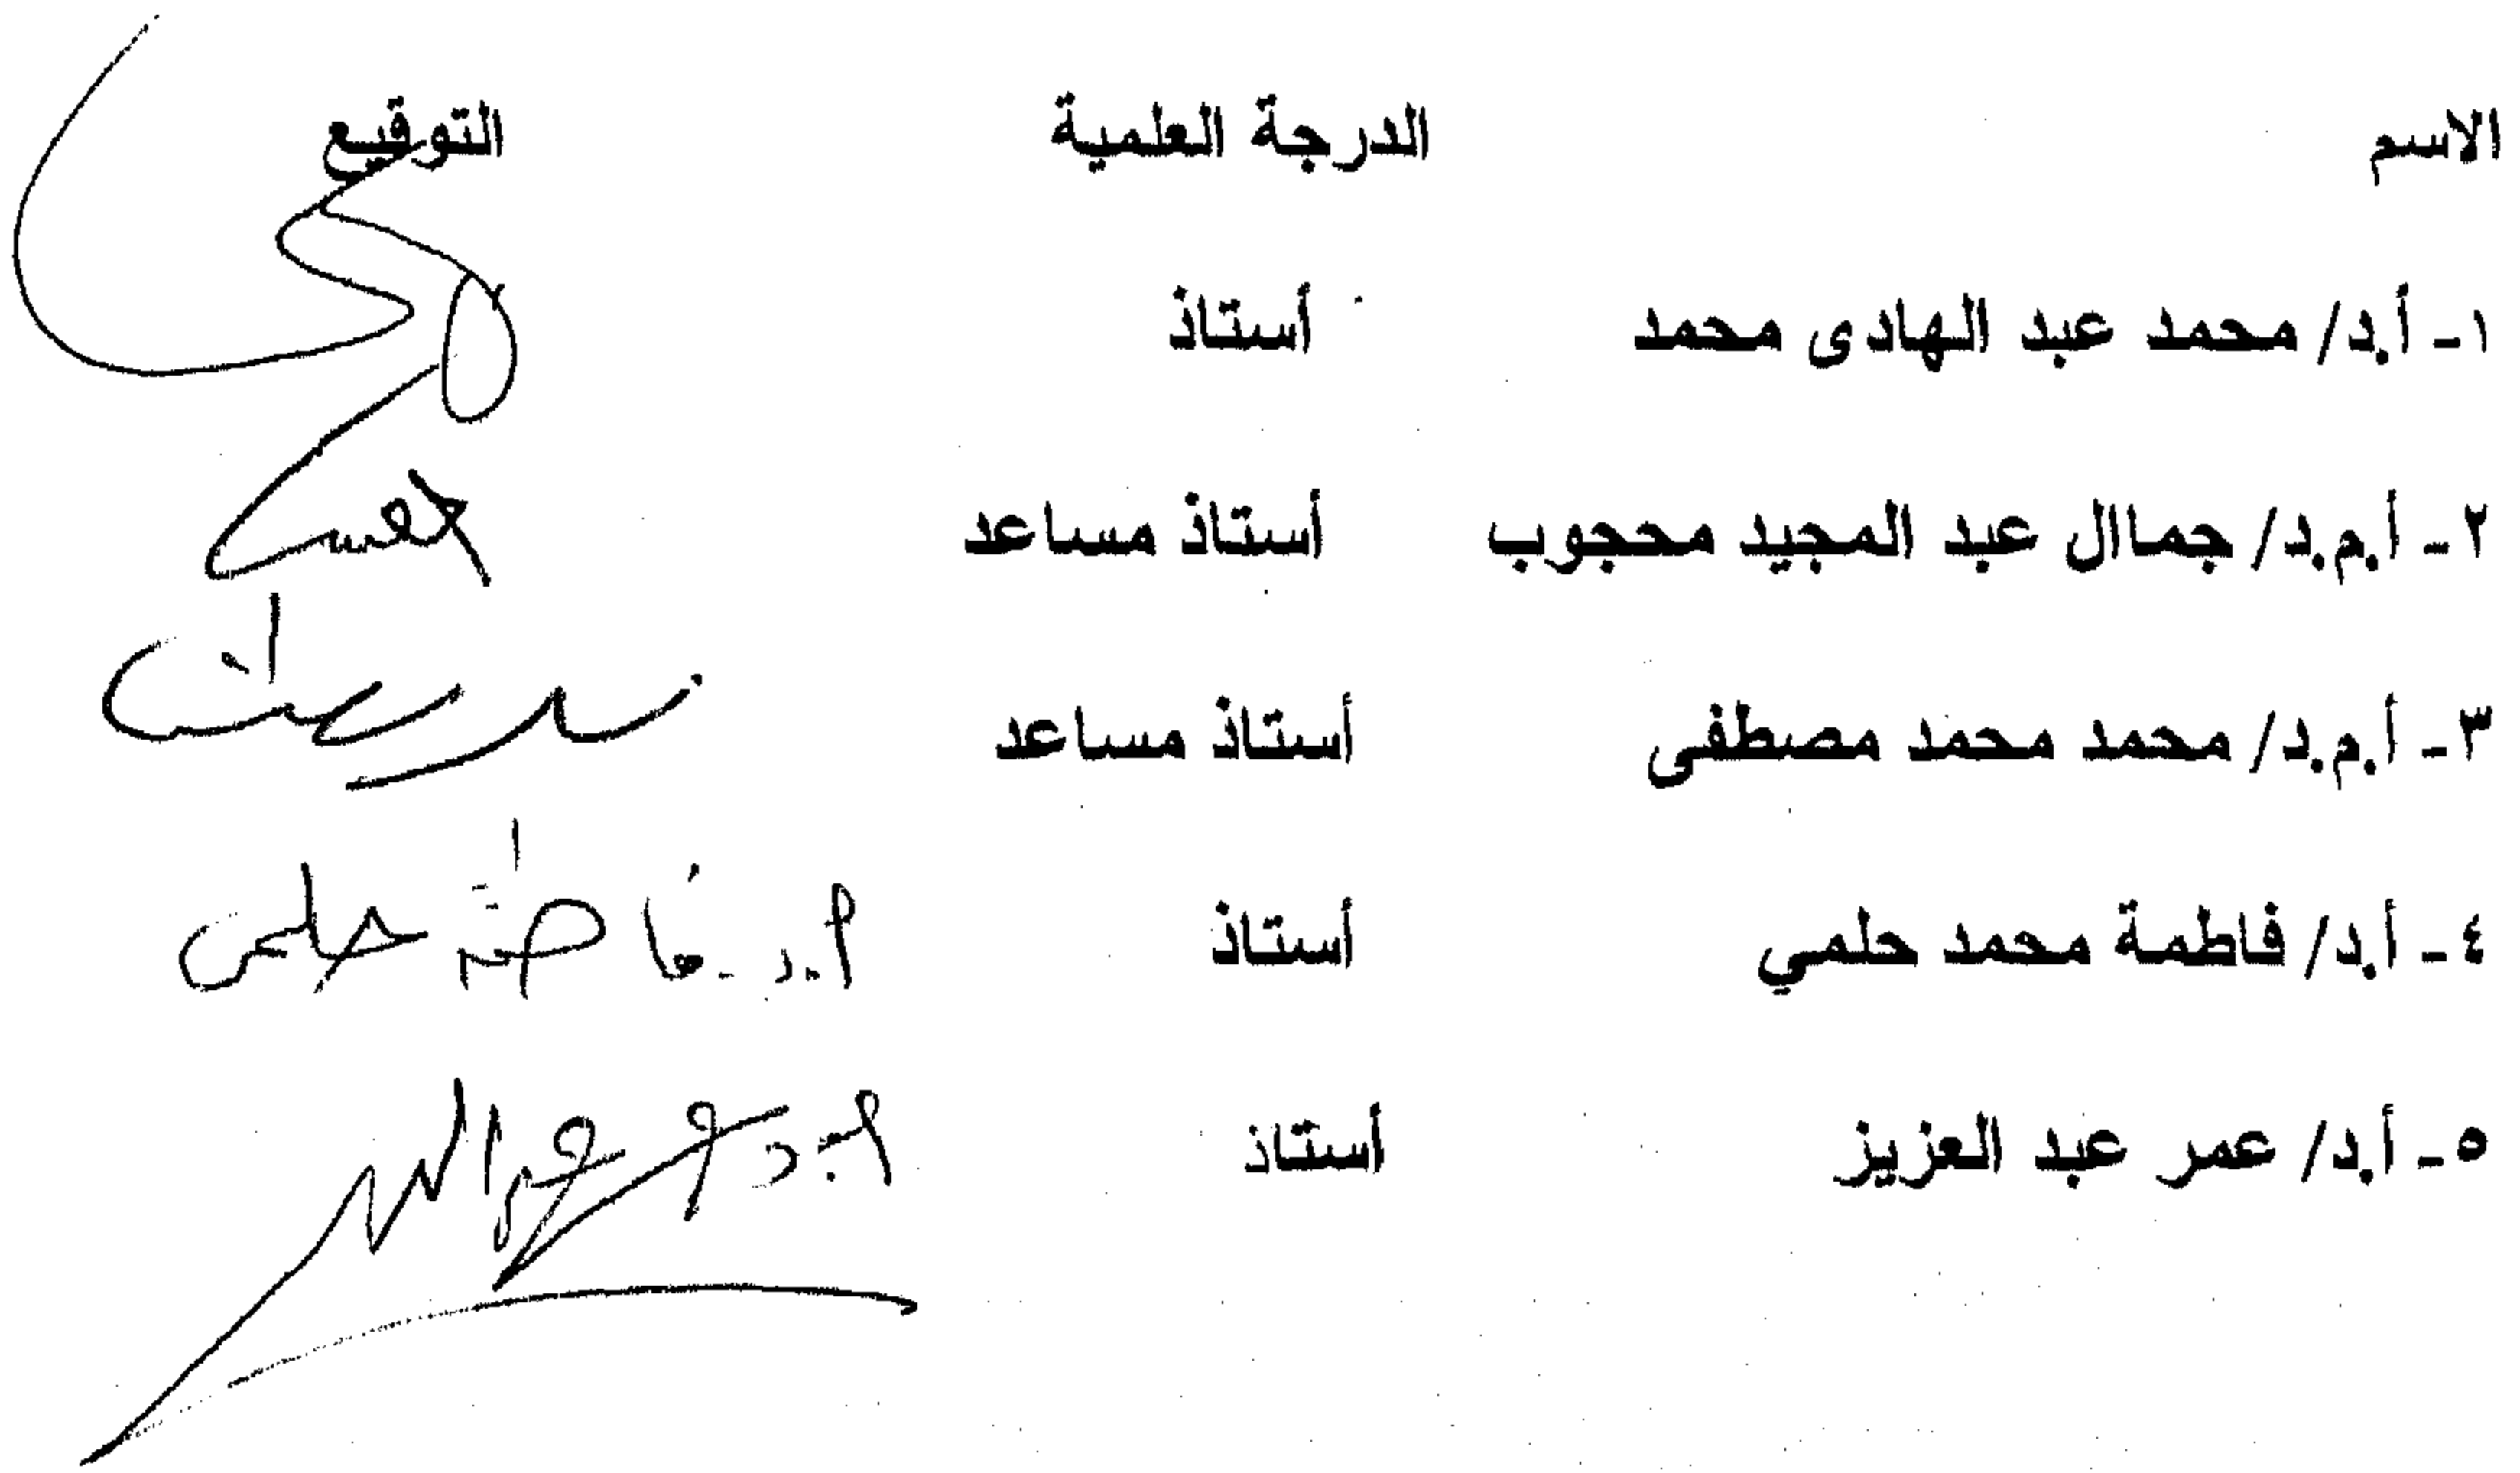 الاسم الدرجة العلمية التوقيع
١- أ.د/ محمد عبد الهادى محمد أستاذ
٢- أ.م.د/ جمال عبد المجيد محجوب أستاذ مساعد
٣- أ.م.د/ محمد محمد مصطفى أستاذ مساعد
٤- أ.د/ فاطمة محمد حلمي أستاذ أ.د. فاطمة حلمى
٥- أ.د/ عمر عبد العزيز أستاذ أ.د